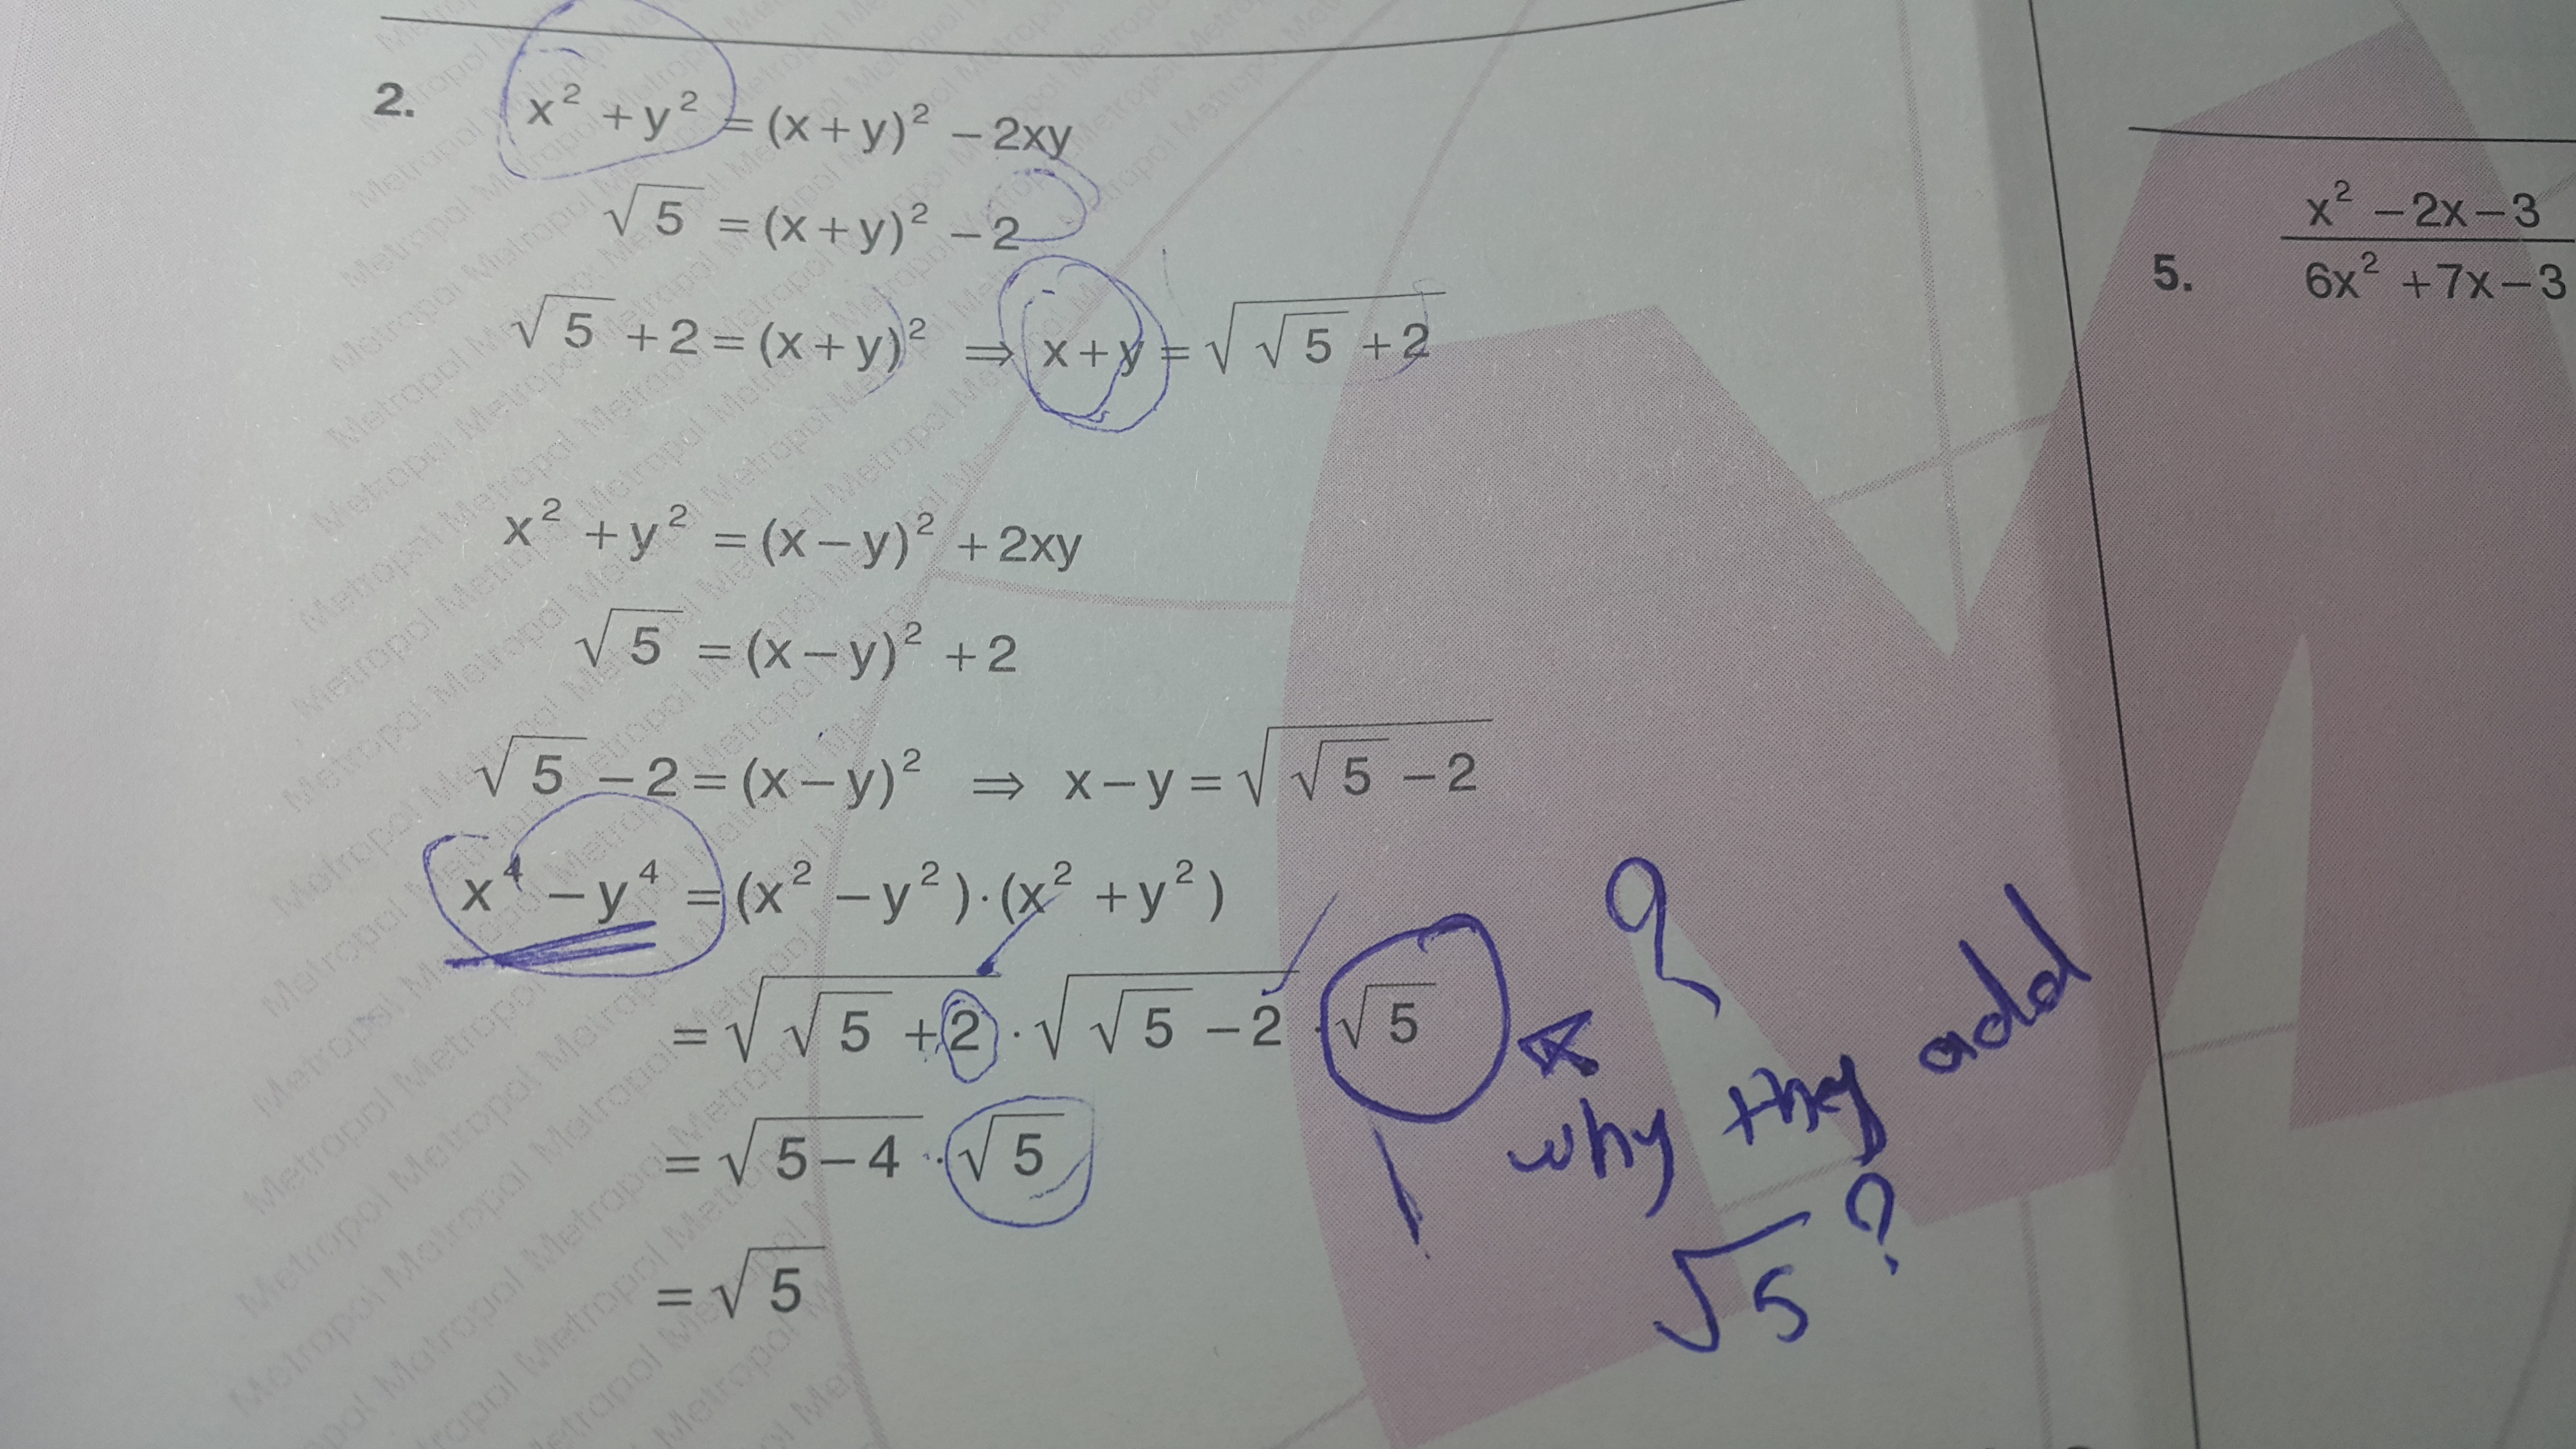 2. x² + y² = (x + y)² − 2xy
√5 = (x + y)² − 2
√5 + 2 = (x + y)² ⇒ x + y = √(√5 + 2)
x² + y² = (x − y)² + 2xy
√5 = (x − y)² + 2
√5 − 2 = (x − y)² ⇒ x − y = √(√5 − 2)
x⁴ − y⁴ = (x² − y²)·(x² + y²)
= √(√5 + 2) · √(√5 − 2) · √5
= √(5 − 4) · √5
= √5
?
why they add
√5 ?
5. (x² − 2x − 3)/(6x² + 7x − 3)
Metropol Metropol Metropol Metropol